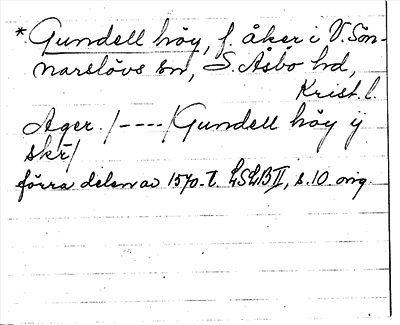 * Gundell höy, f. åker i V. Sön-
narslövs sn, S. Åsbo hd,
Krist. l.
Ager. /----/ Gundell höy ij
skr̄/
förra delen av 1570-t. LSLB II, s. 10. orig.